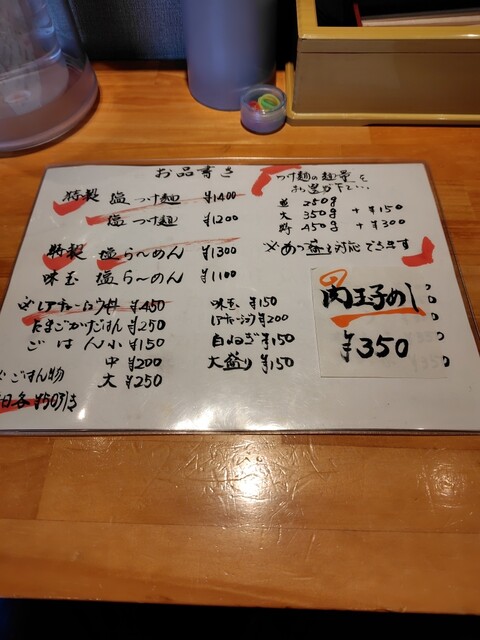 お品書き
特製 塩つけ麺 ¥1400
塩つけ麺 ¥1200
特製 塩らーめん ¥1300
味玉 塩らーめん ¥1100
※レアチャーシュウ丼 ¥450
たまごかけごはん ¥250
ごはん 小 ¥150
中 ¥200
大 ¥250
ごはん物
各¥50引き
味玉 ¥150
レアチャーシュウ ¥200
白ねぎ ¥150
大盛り ¥150
つけ麺の麺量を
お選び下さい…
並 250g
大 350g +¥150
450g +¥300
※あつ盛も対応できます
肉玉子めし
¥350